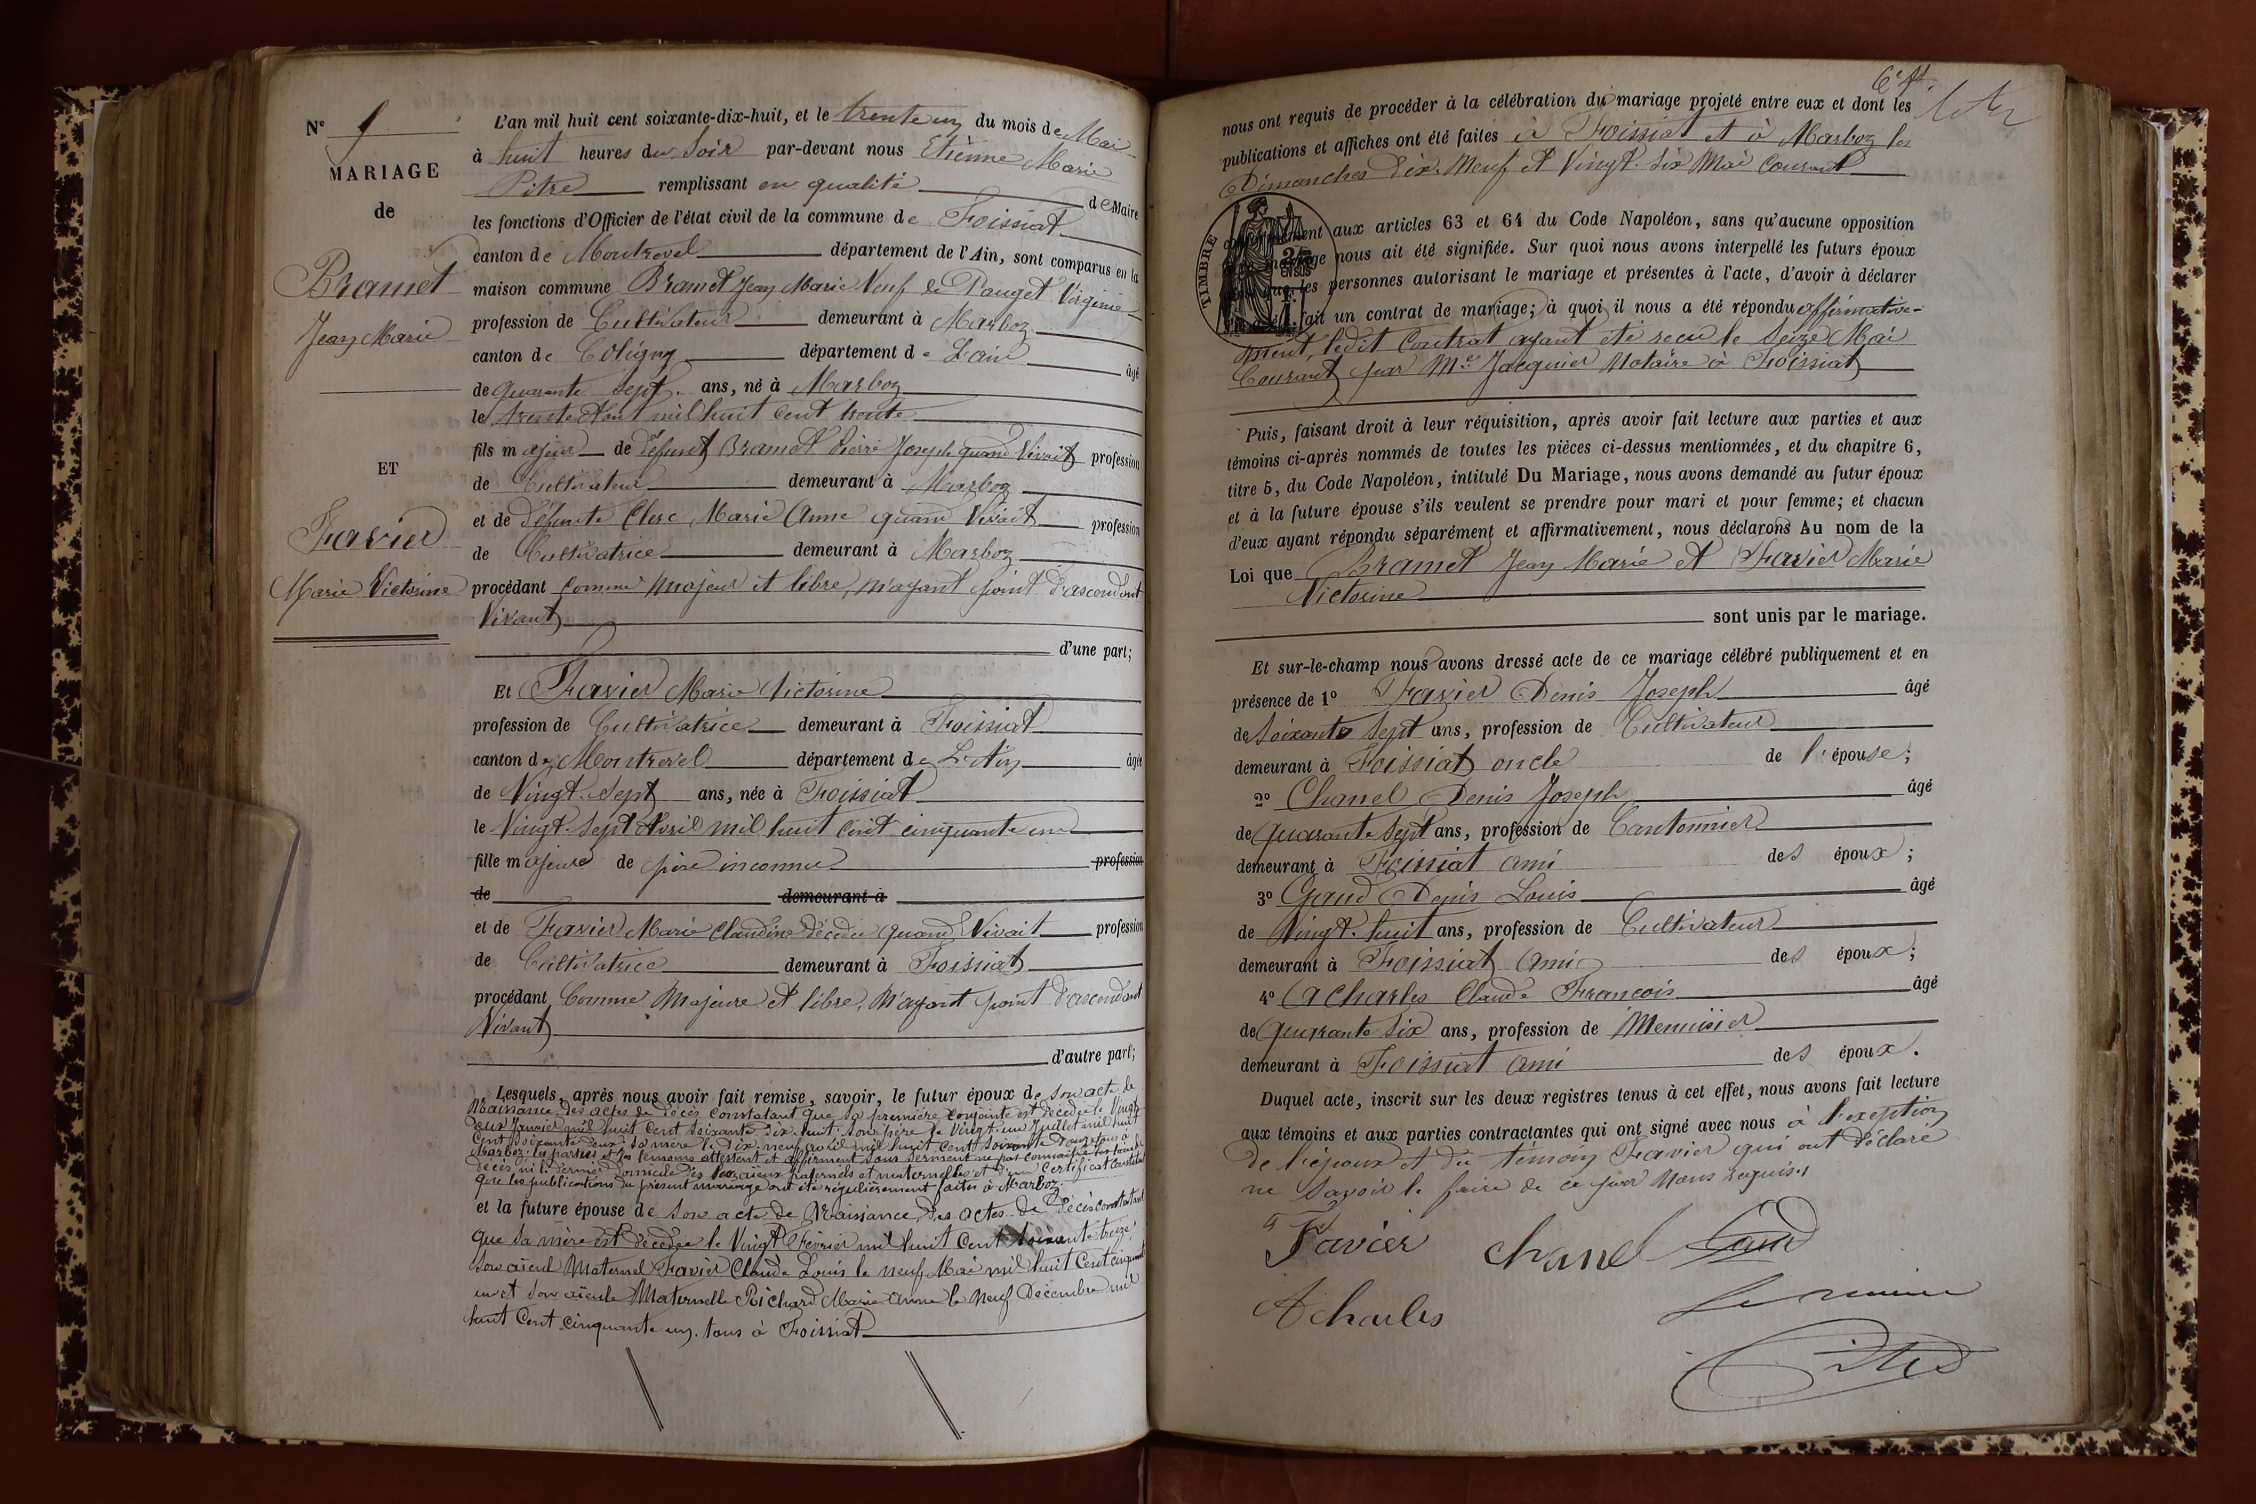 N° 9
MARIAGE
de
Bramet
Jean Marie
ET
Favier
Marie Victorine
L'an mil huit cent soixante-dix-huit, et le trente un du mois de Mai
à huit heures du Soir par-devant nous Etienne Marie
Pitre remplissant en qualité de Maire
les fonctions d'Officier de l'état civil de la commune de Foissiat
canton de Montrevel département de l'Ain, sont comparus en la
maison commune Bramet Jean Marie Veuf de Pauget Virginie
profession de Cultivateur demeurant à Marboz
canton de Coligny département de L'ain âgé
de quarante sept ans, né à Marboz
le trente Août mil huit cent trente
fils majeur de défunt Bramet Pierre Joseph quand Vivait profession
de Cultivateur demeurant à Marboz
et de Défunte Clerc Marie Anne quand Vivait profession
de Cultivatrice demeurant à Marboz
procédant comme majeur et libre, n'ayant point d'ascendant
Vivant
d'une part;
Et Favier Marie Victorine
profession de Cultivatrice demeurant à Foissiat
canton de Montrevel département de L'Ain âgée
de Vingt-Sept ans, née à Foissiat
le Vingt-Sept Avril mil huit cent cinquante un
fille majeure de père inconnu profession
de demeurant à
et de Favier Marie Claudine Décédée quand Vivait profession
de Cultivatrice demeurant à Foissiat
procédant Comme Majeure et libre, n'ayant point d'ascendant
Vivant
d'autre part;
Lesquels, après nous avoir fait remise, savoir, le futur époux de son acte de
Naissance, des actes de Décès constatant que sa première conjointe est Décédée le Vingt
deux Janvier mil huit Cent soixante dix huit, son père le Vingt-un Juillet mil huit
Cent Soixante deux, sa mère le dix neuf avril mil huit Cent soixante tous à
Marboz; les parties et les témoins attestent et affirment sous serment ne pas connaître les lieux de
décès ni le dernier domicile des ayeux paternels et maternelles et d'un Certificat Constatant
que les publications du présent mariage ont été régulièrement faites à Marboz.
et la future épouse de son acte de Naissance, des actes de Décès constatant
que sa mère est décédée le Vingt Février mil huit Cent soixante treize,
son aïeul Maternel Favier Claude Louis le neuf Mai mil huit Cent cinquante
un et son aïeule Maternelle Richard Marie Anne le Neuf Décembre mil
huit Cent Cinquante un, tous à Foissiat
nous ont requis de procéder à la célébration du mariage projeté entre eux et dont les
publications et affiches ont été faites à Foissiat et à Marboz les
Dimanches Dix-Neuf et Vingt-Six Mai Courant
TIMBRE
aux articles 63 et 64 du Code Napoléon, sans qu'aucune opposition
nous ait été signifiée. Sur quoi nous avons interpellé les futurs époux
les personnes autorisant le mariage et présentes à l'acte, d'avoir à déclarer
fait un contrat de mariage; à quoi il nous a été répondu affirmative-
ment, ledit Contrat ayant été reçu le Seize Mai
Courant par Me Jacquier Notaire à Foissiat
Puis, faisant droit à leur réquisition, après avoir fait lecture aux parties et aux
témoins ci-après nommés de toutes les pièces ci-dessus mentionnées, et du chapitre 6,
titre 5, du Code Napoléon, intitulé Du Mariage, nous avons demandé au futur époux
et à la future épouse s'ils veulent se prendre pour mari et pour femme; et chacun
d'eux ayant répondu séparément et affirmativement, nous déclarons Au nom de la
Loi que Bramet Jean Marie et Favier Marie
Victorine
sont unis par le mariage.
Et sur-le-champ nous avons dressé acte de ce mariage célébré publiquement et en
présence de 1° Favier Denis Joseph âgé
de Soixante Sept ans, profession de Cultivateur
demeurant à Foissiat oncle de l'épouse;
2° Chanel Denis Joseph âgé
de quarante Sept ans, profession de Cantonnier
demeurant à Foissiat ami des époux;
3° Gaud Denis Louis âgé
de Vingt-huit ans, profession de Cultivateur
demeurant à Foissiat Ami des époux;
4° Acharles Claude François âgé
de quarante Six ans, profession de Menuisier
demeurant à Foissiat Ami des époux.
Duquel acte, inscrit sur les deux registres tenus à cet effet, nous avons fait lecture
aux témoins et aux parties contractantes qui ont signé avec nous à l'exception
de l'époux et du témoin Favier qui ont déclaré
ne Savoir le faire de ce par Nous requis.
Favier Chanel Gaud
Acharles Le maire
Pitre